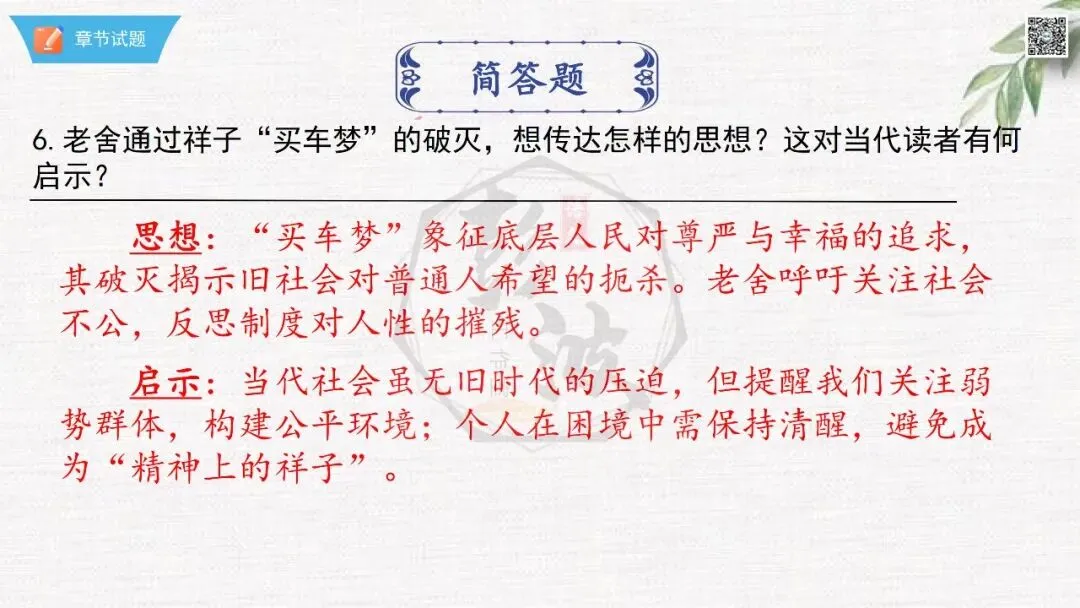 章节试题
简答题
6.老舍通过祥子“买车梦”的破灭，想传达怎样的思想？这对当代读者有何
启示？
思想：“买车梦”象征底层人民对尊严与幸福的追求，
其破灭揭示旧社会对普通人希望的扼杀。老舍呼吁关注社会
不公，反思制度对人性的摧残。
启示：当代社会虽无旧时代的压迫，但提醒我们关注弱
势群体，构建公平环境；个人在困境中需保持清醒，避免成
为“精神上的祥子”。